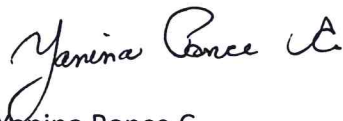 Yanina Ponce C.
Yanina Ponce C.